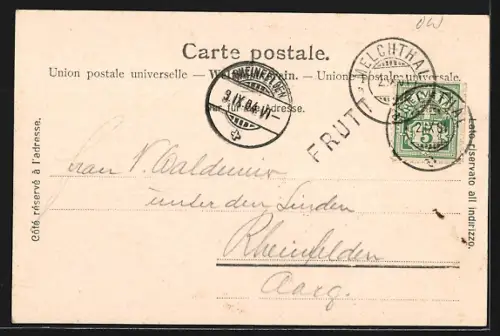 OW
Carte postale.
Union postale universelle. — Weltpostverein. — Unione postale universale.
Nur für die Adresse.
Côté réservé à l'adresse.
Lato riservato all'indirizzo.
RHEINFELDEN
3.IX.04.VI-
MELCHTHAL
2.IX.04
MELCHTHAL
2.IX.04
5
FRUTT
Frau V. Waldmeier
unter den Linden
Rheinfelden
Aarg.